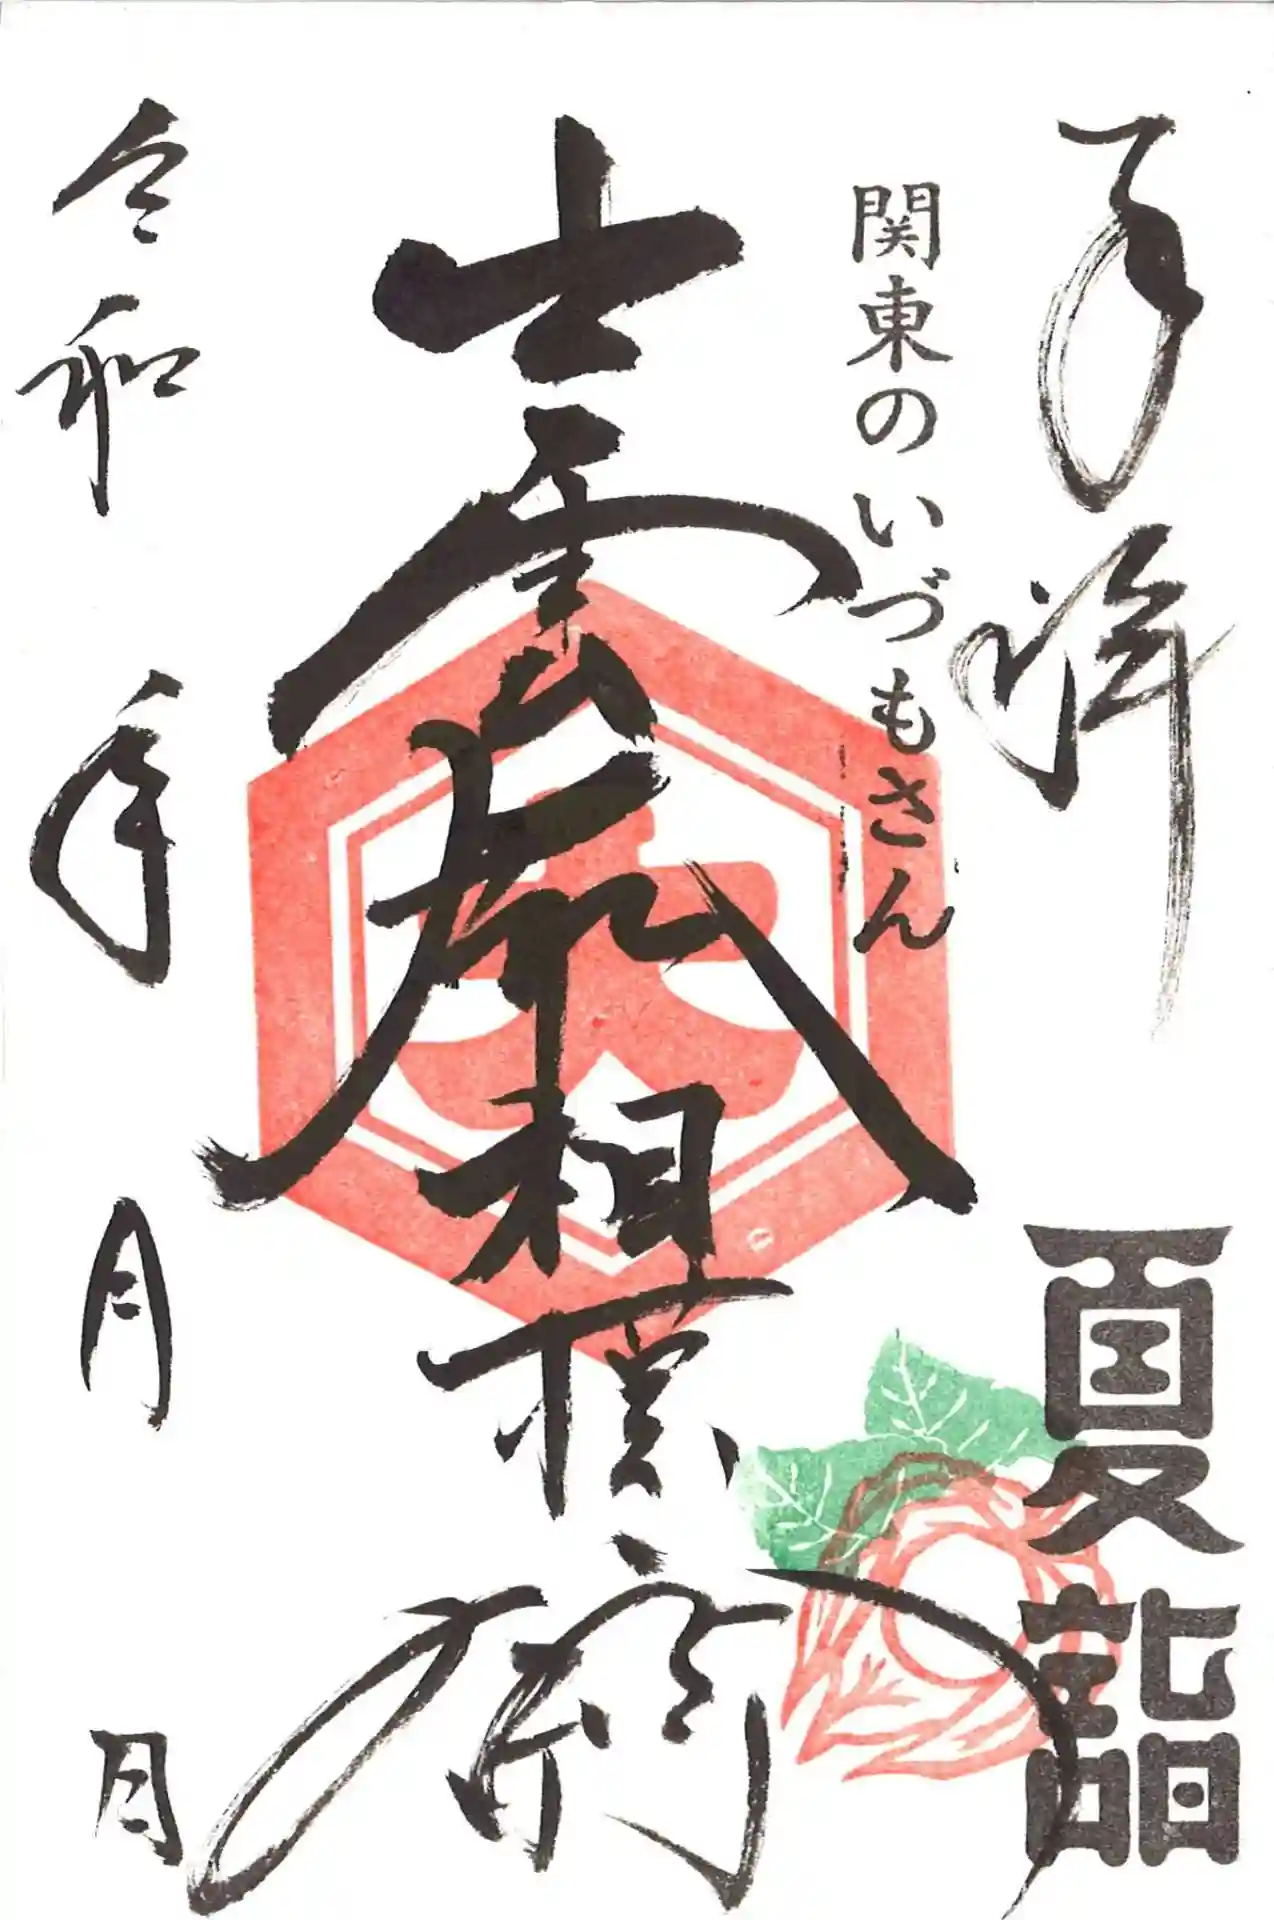 奉拝
関東のいづもさん
夏詣
大
出雲大社相模分祠
令和 年 月 日